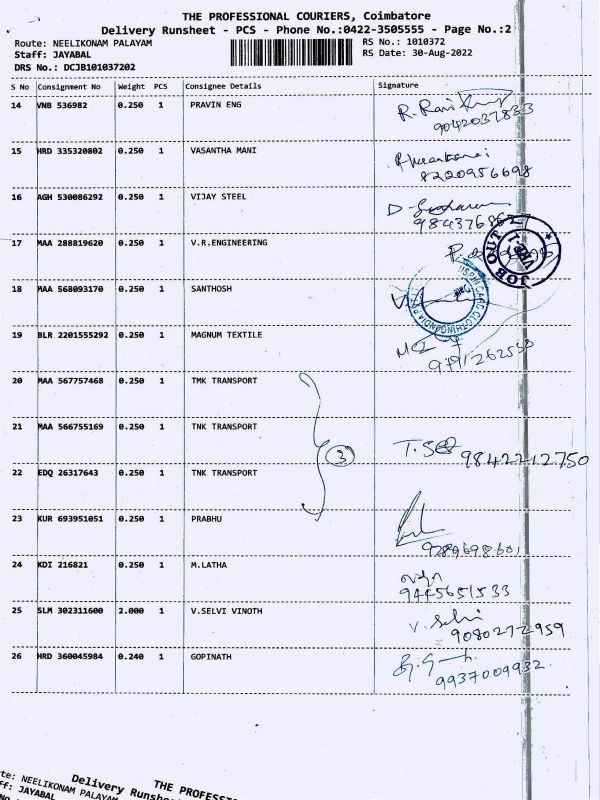 THE PROFESSIONAL COURIERS, Coimbatore
Delivery Runsheet - PCS - Phone No.:0422-3505555 - Page No.:2
Route: NEELIKONAM PALAYAM
RS No.: 1010372
Staff: JAYABAL
RS Date: 30-Aug-2022
DRS No.: DCJB101037202
S No Consignment No Weight PCS Consignee Details Signature
14 VNB 536982 0.250 1 PRAVIN ENG
9042037833
15 HRD 335320802 0.250 1 VASANTHA MANI
8220956698
16 AGH 530086292 0.250 1 VIJAY STEEL
17 MAA 288819620 0.250 1 V.R.ENGINEERING
JOB OUT
18 MAA 568093170 0.250 1 SANTHOSH
19 BLR 2201555292 0.250 1 MAGNUM TEXTILE
9791262550
20 MAA 567757468 0.250 1 TMK TRANSPORT
21 MAA 566755169 0.250 1 TNK TRANSPORT
9842212750
22 EDQ 26317643 0.250 1 TNK TRANSPORT
3
23 KUR 693951051 0.250 1 PRABHU
9289698601
24 KDI 216821 0.250 1 M.LATHA
9445651533
25 SLM 302311600 2.000 1 V.SELVI VINOTH
V. Selvi
9080272959
26 HRD 360045984 0.240 1 GOPINATH
9937009932
Delivery Runsh
THE PROFESS
NEELIKONAM PALAYAM
JAYABAL